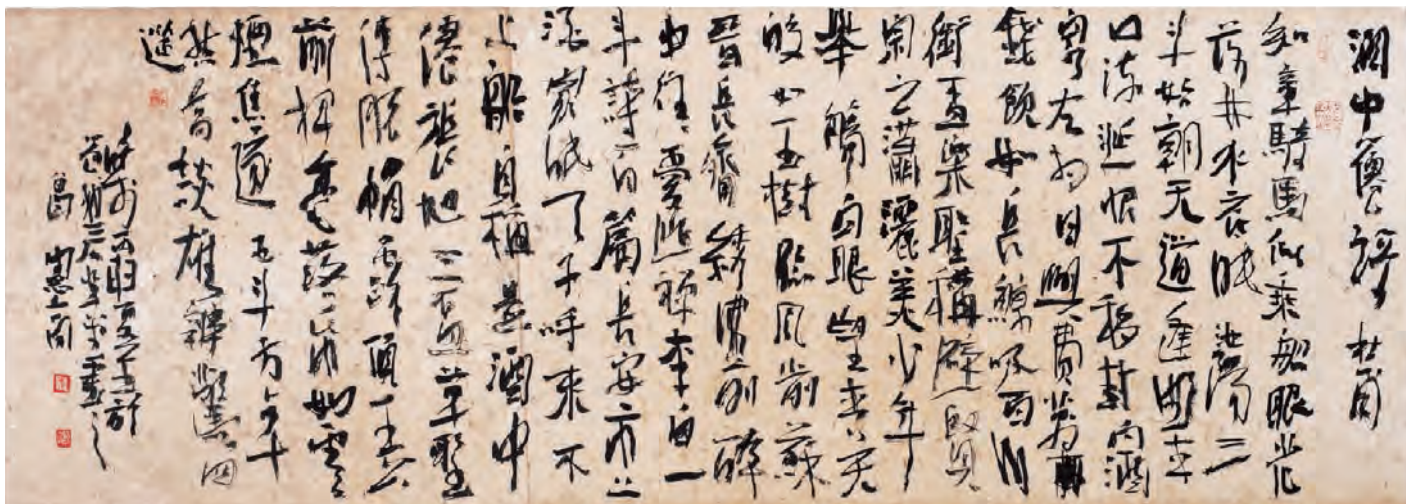 中僊 杜甫
知章騎馬似乘船眼花
落井水底眠汝陽三
斗始朝天道逢車
口流涎恨不移封向酒
泉左相日興費萬
錢飲如長鯨吸百川
銜盃樂聖稱避賢
宗之瀟灑美少年
舉觴白眼望青天
皎如玉樹臨風前蘇
晉長齋繡佛前醉
中往往愛逃禪李白一
斗詩百篇長安市上
酒家眠天子呼來不
上船自稱臣是酒中
僊張旭三盃草聖
傳脫帽露頂王公
前揮毫落紙如雲
煙焦遂五斗方卓
然高談雄辯驚四
筵